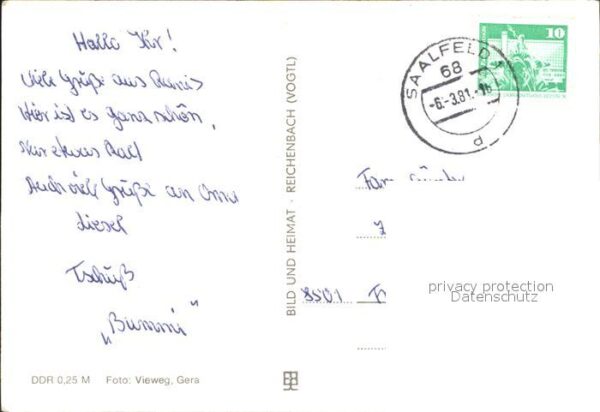 Hallo Ihr!
Viele Grüße aus Ranis
Hier ist es ganz schön,
nur etwas kalt
Auch viele Grüße an Oma
Liesel
Tschüß
„Bummi“
DDR 0,25 M Foto: Vieweg, Gera
BILD UND HEIMAT · REICHENBACH (VOGTL)
SAALFELD 1
68
-6.-3.81.-18
d
10
Fam
8501
privacy protection
Datenschutz